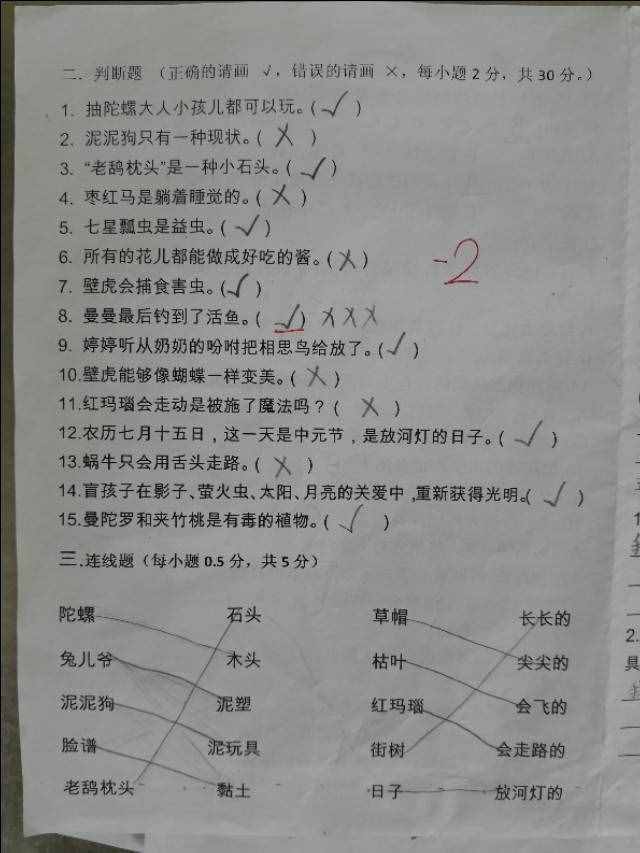 二. 判断题 （正确的请画 √，错误的请画 ×，每小题 2 分，共 30 分。）
1. 抽陀螺大人小孩儿都可以玩。( √ )
2. 泥泥狗只有一种现状。( × )
3. “老鸹枕头”是一种小石头。( √ )
4. 枣红马是躺着睡觉的。( × )
5. 七星瓢虫是益虫。( √ )
6. 所有的花儿都能做成好吃的酱。( × )
-2
7. 壁虎会捕食害虫。( √ )
8. 曼曼最后钓到了活鱼。( √ ) ×××
9. 婷婷听从奶奶的吩咐把相思鸟给放了。( √ )
10.壁虎能够像蝴蝶一样变美。( × )
11.红玛瑙会走动是被施了魔法吗？( × )
12.农历七月十五日，这一天是中元节，是放河灯的日子。( √ )
13.蜗牛只会用舌头走路。( × )
14.盲孩子在影子、萤火虫、太阳、月亮的关爱中,重新获得光明。( √ )
15.曼陀罗和夹竹桃是有毒的植物。( √ )
三.连线题（每小题 0.5 分，共 5 分）
陀螺 石头 草帽 长长的
兔儿爷 木头 枯叶 尖尖的
泥泥狗 泥塑 红玛瑙 会飞的
脸谱 泥玩具 街树 会走路的
老鸹枕头 黏土 日子 放河灯的
2.
具